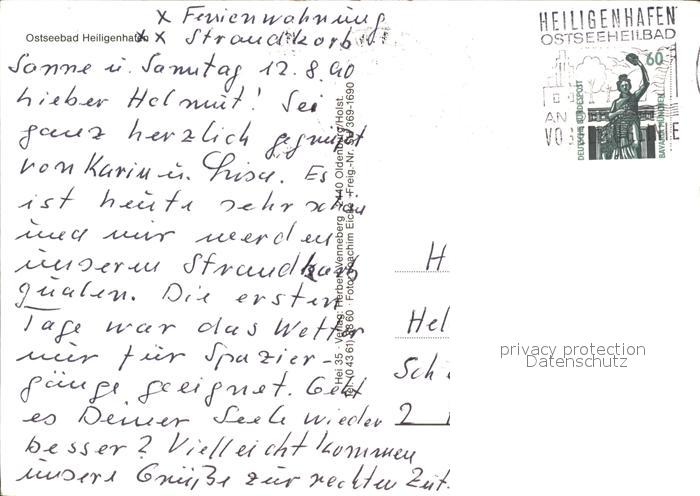 x Ferienwohnung
xx Strandkorb
Ostseebad Heiligenhafen
Sonne u. Samstag 12.8.90
Lieber Helmut! Sei
ganz herzlich gegrüßt
von Karin u. Lisa. Es
ist heute sehr schön
und wir werden
unseren Strandkorb
quälen. Die ersten
Tage war das Wetter
nur für Spazier-
gänge geeignet. Geht
es Deiner Seele wieder
besser? Vielleicht kommen
unsere Grüße zur rechten Zeit.
Hei 35 - Verlag: Herbert Wenneberg 2440 Oldenburg/Holst.
HEILIGENHAFEN
OSTSEEHEILBAD
60
DEUTSCHE BUNDESPOST
BAVARIA MÜNCHEN
H
Hel
Sch
2
privacy protection
Datenschutz